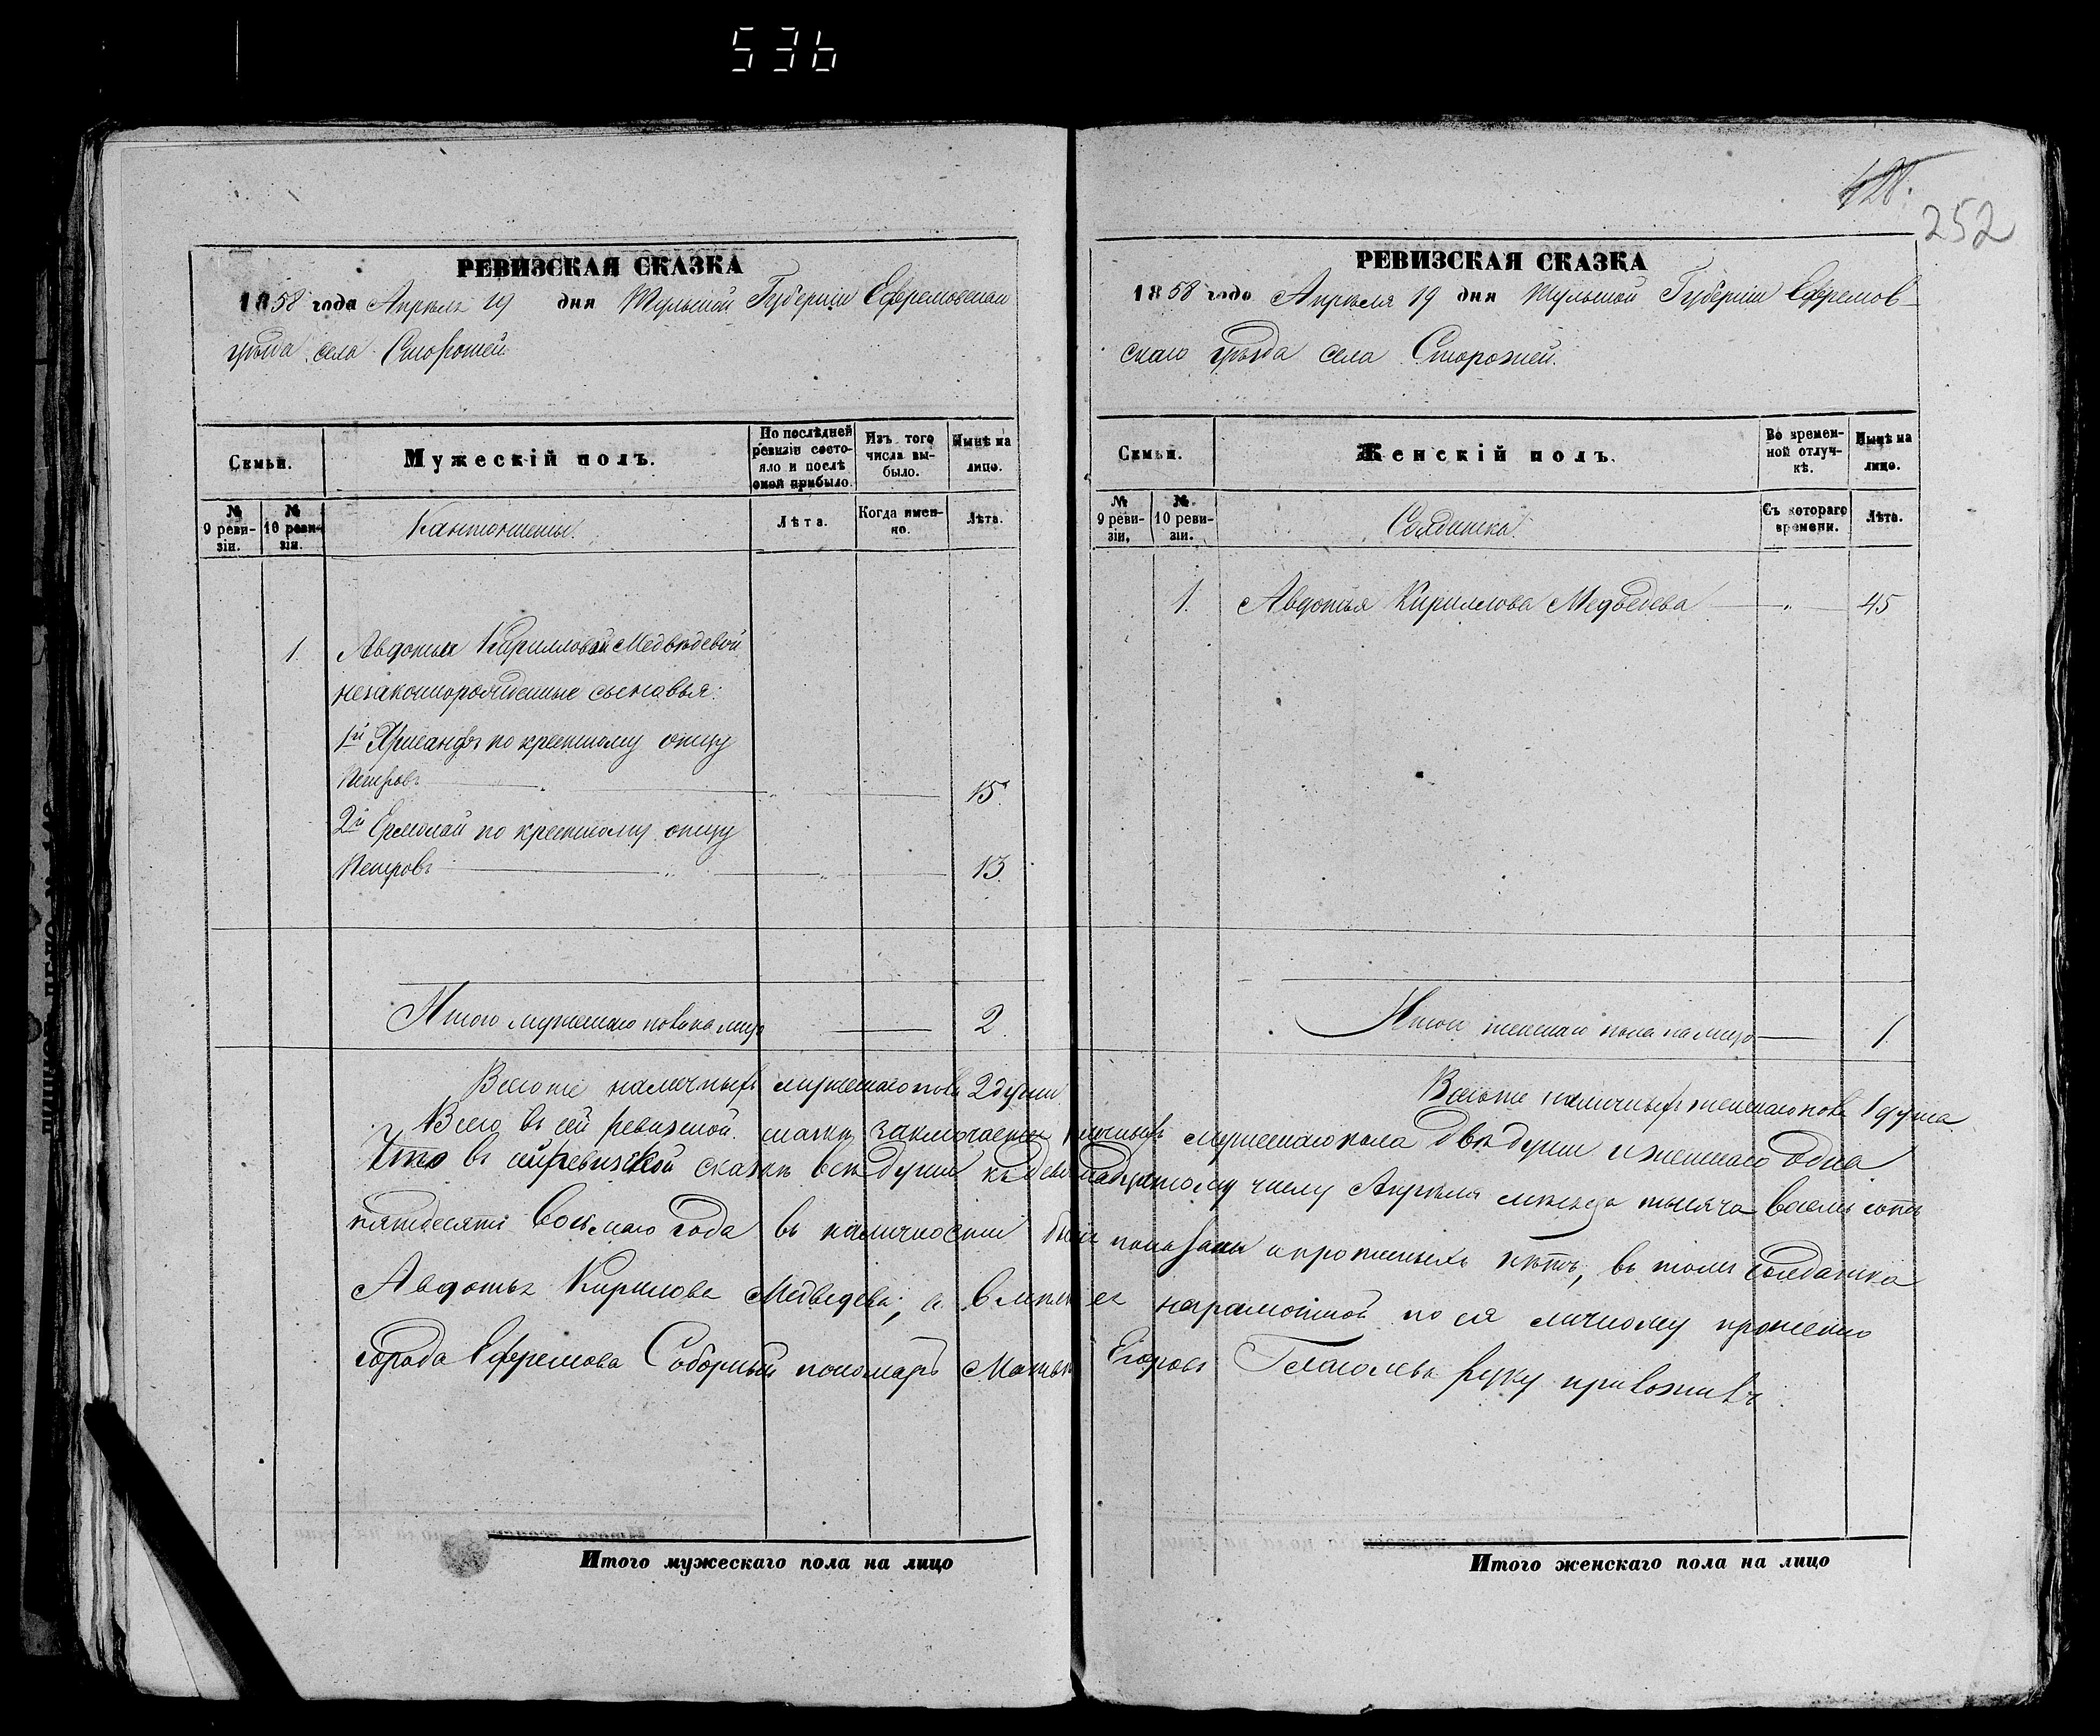 536
428.
252
РЕВИЗСКАЯ СКАЗКА
1858 года Апрѣля 19 дня Тульской Губерніи Ефремовскаго
уѣзда села Сторожей
Семьи.
Мужескій полъ.
По послѣдней ревизіи состояло и послѣ оной прибыло.
Изъ того числа выбыло.
Нынѣ на лицо.
№ 9 ревизіи.
№ 10 ревизіи.
Кантонисты.
Лѣта.
Когда именно.
Лѣта.
1. Авдотьи Кирилловой Медвѣдевой
незаконнорожденные сыновья:
1й Хрисанфъ по крестному отцу
Петровъ 15.
2й Ермолай по крестному отцу
Петровъ 13.
Итого мужескаго пола на лицо 2.
Всего же наличныхъ мужескаго пола 2 души.
РЕВИЗСКАЯ СКАЗКА
1858 года Апрѣля 19 дня Тульской Губерніи Ефремов-
скаго уѣзда села Сторожей.
Семьи.
Женскій полъ.
Во временной отлучкѣ.
Нынѣ на лицо.
№ 9 ревизіи.
№ 10 ревизіи.
Солдатка.
Съ котораго времени.
Лѣта.
1. Авдотья Кириллова Медведева " 45
Итого женскаго пола на лицо 1
Всего же наличныхъ женскаго пола 1 душа
Всего въ сей ревизской сказкѣ заключается наличныхъ мужескаго пола двѣ души и женскаго одна
Что въ сей ревизской сказкѣ всѣ души къ девятнадцатому числу Апрѣля мѣсяца тысяча восемь сотъ
пятдесятъ восьмаго года въ наличности были показаны и прописныхъ нѣтъ, въ томъ солдатка
Авдотья Кирилова Медведева, а вместо ея неграмотной по ея личному прошенію
города Ефремова Соборный пономарь Матвей Егоровъ Глаголевъ руку приложилъ
Итого мужескаго пола на лицо
Итого женскаго пола на лицо